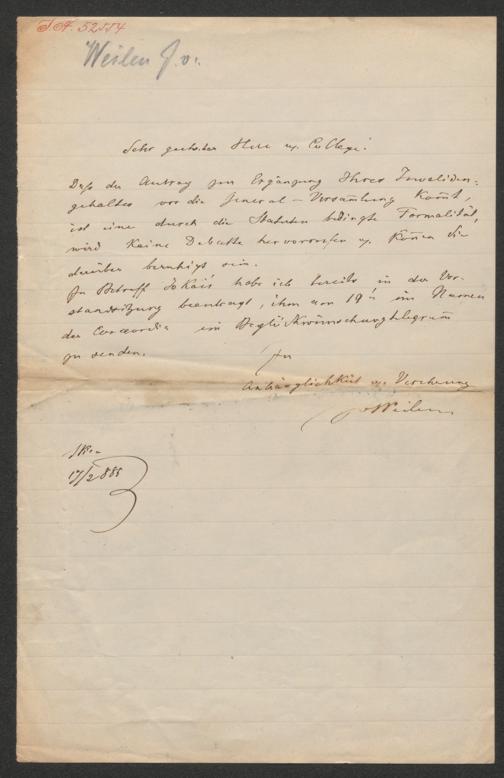 J.N. 52554
Weilen J. v.
Sehr geehrter Herr u. College!
Daß der Antrag zur Ergänzung Ihres Invaliden-
gehaltes vor die General-Versamlung komt,
ist eine durch die Statuten bedingte Formalität,
wird keine Debatte hervorrufen u. könen Sie
darüber beruhigt sein.
In Betreff Jokais habe ich bereits in der Vor-
standssitzung beantragt, ihm am 19t im Namen
der Concordia ein Beglückwünschungstelegram
zu senden.
In
Anhänglichkeit u. Verehrung
JvWeilen
17/2 888